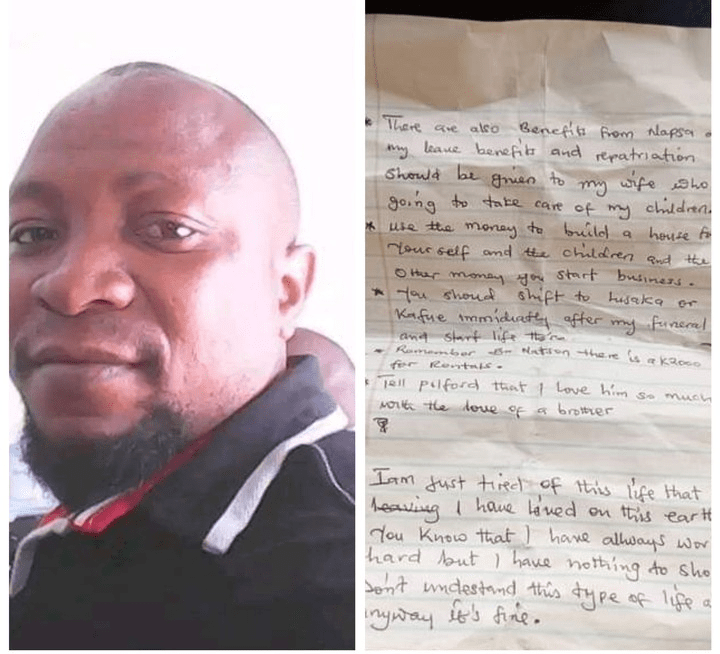 * There are also Benefits from Napsa
my leave benefits and repatriation
should be given to my wife who
going to take care of my children.
* use the money to build a house
Your self and the children and the
other money you start business.
* You shoud shift to Lusaka or
Kafue immidiatly after my funeral
and start life there
* Remember Natson there is a K2000
for Rentals.
* Tell pilford that I love him so much
with the love of a brother
I am just tired of this life that
leaving I have lived on this earth
You Know that I have allways
hard but I have nothing to
Don't undestand this type of life
anyway it's fine.